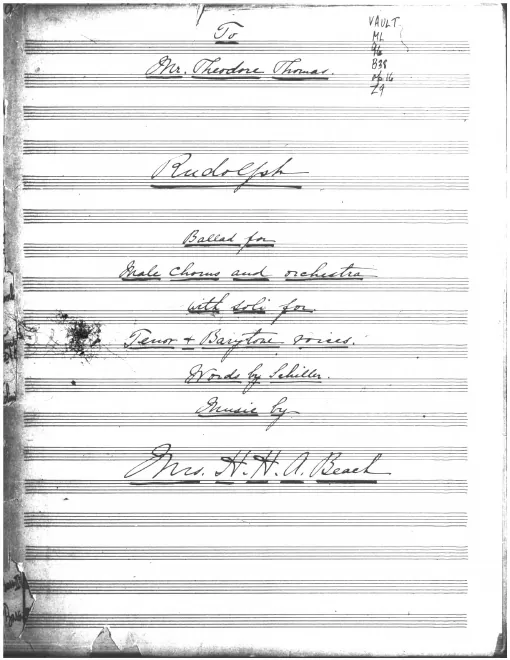 To
Mr. Theodore Thomas.
VAULT
ML
96
B38
op. 16
Rudolph
Ballad for
Male Chorus and orchestra
with soli for
Tenor + Barytone voices.
Words by Schiller.
Music by
Mrs. H. H. A. Beach